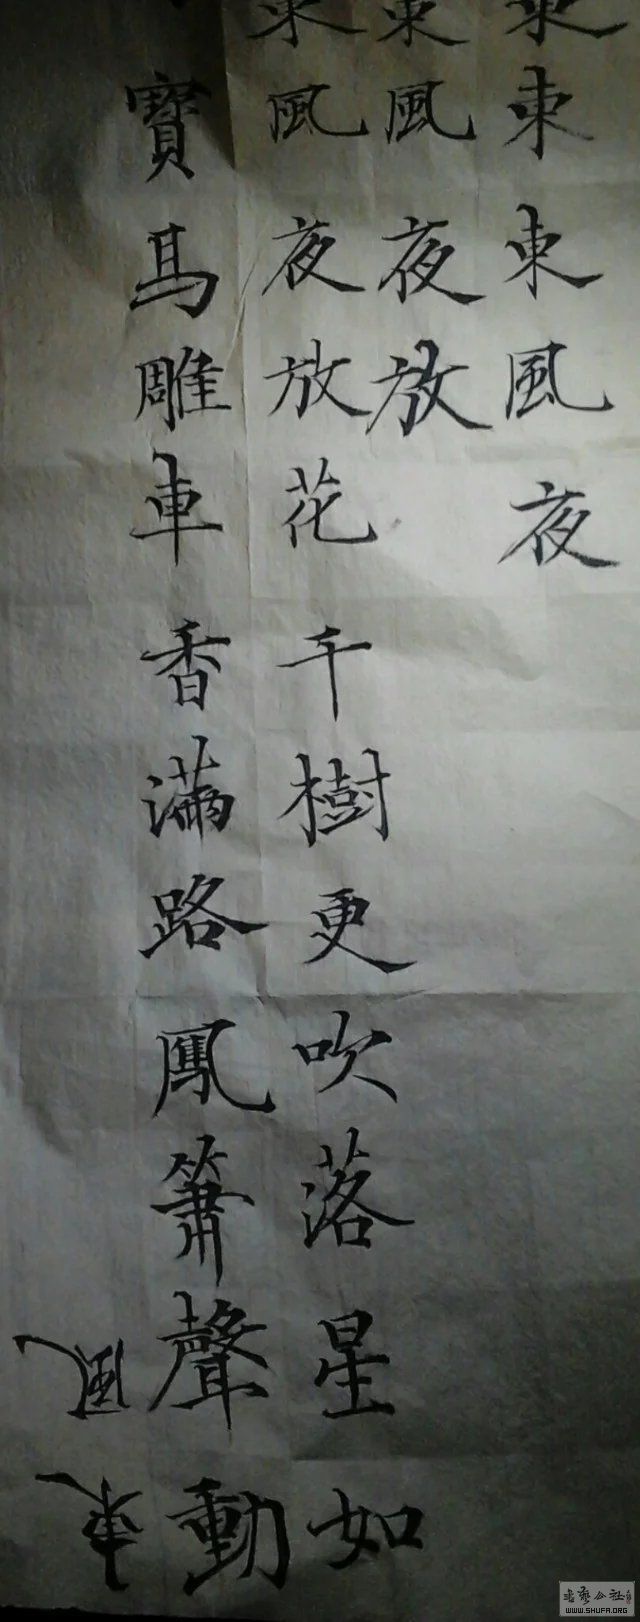 東東東風夜
東風夜放
東風夜放花千樹更吹落星如
寶馬雕車香滿路鳳簫聲動
東風
WWW.SHUFA.ORG